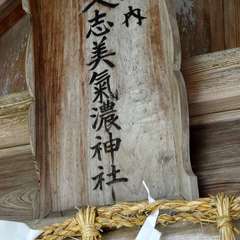 内
志美氣濃神社